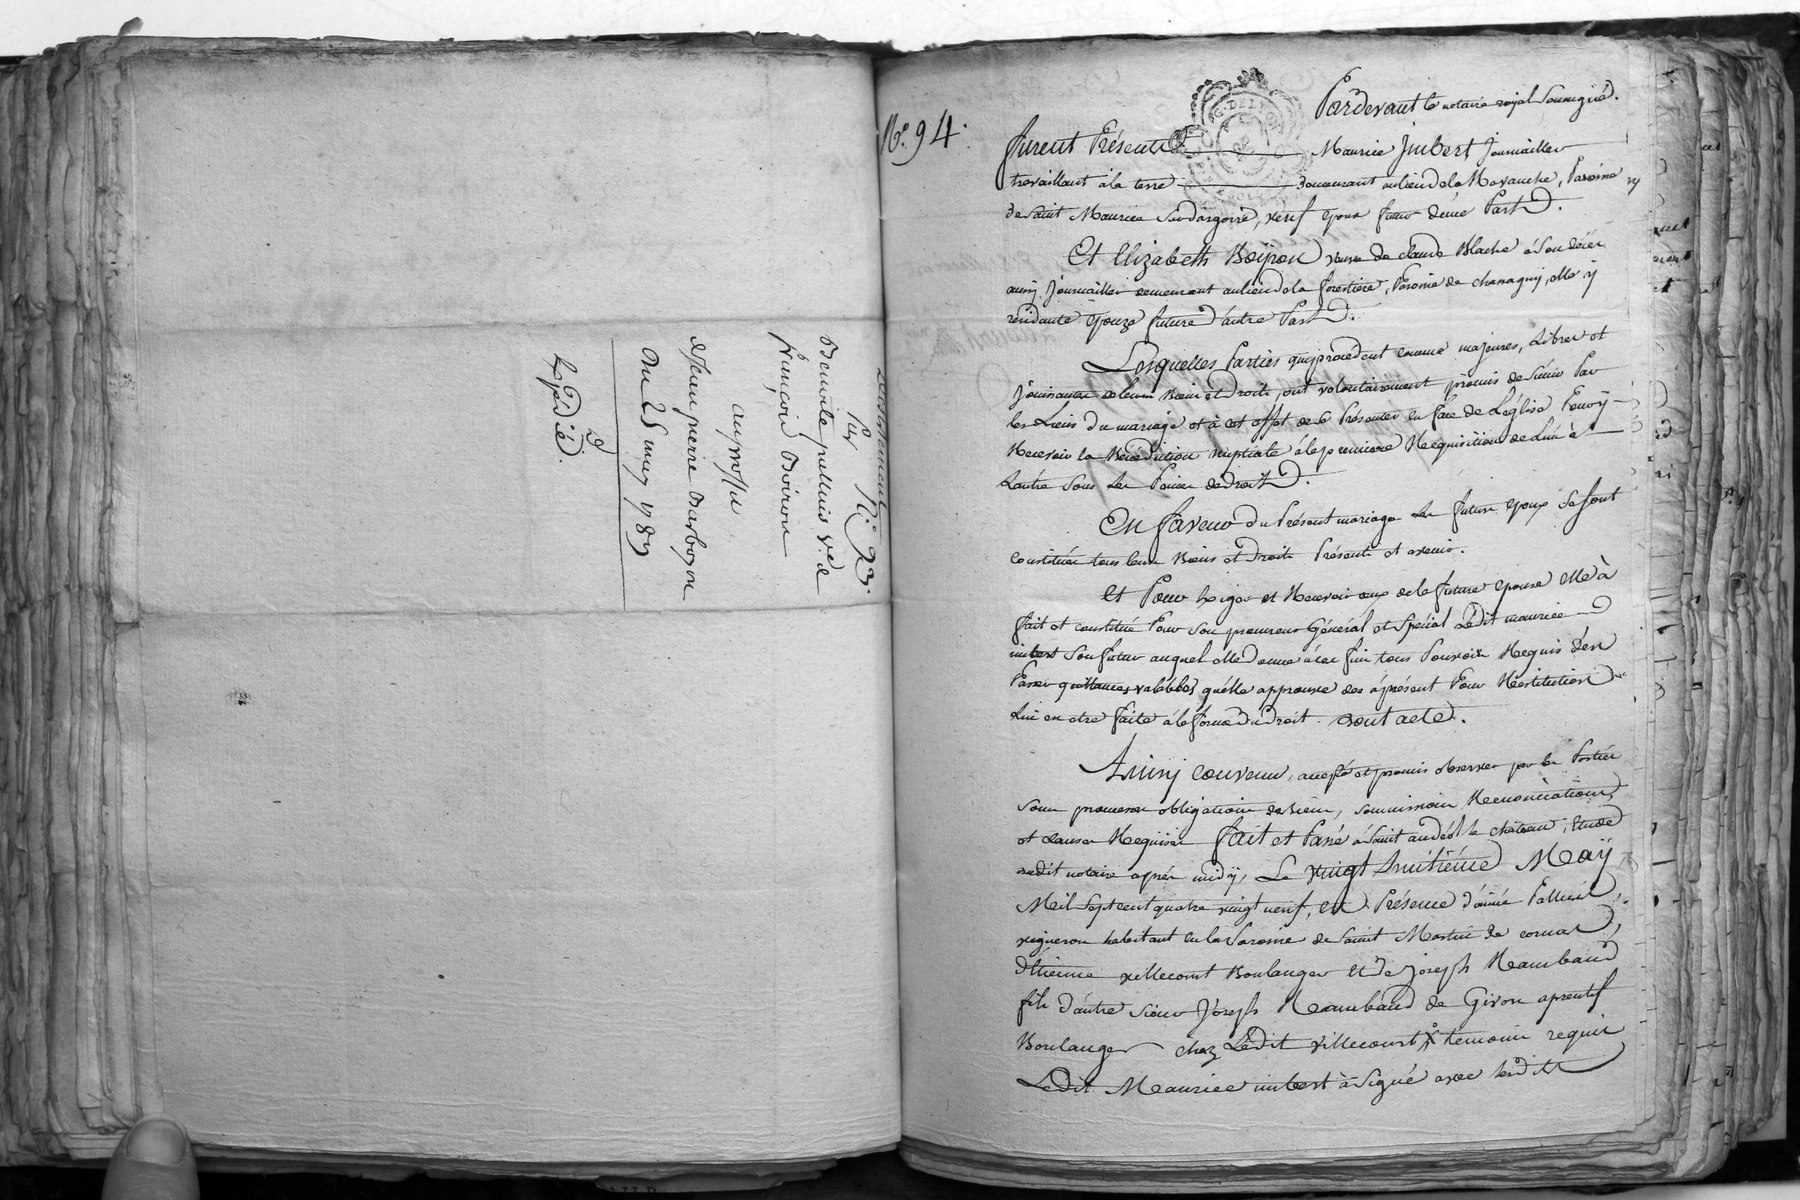 N.° 93.
Par
Benoite palluis v.e de
françois Boiron
au proffit
de Jean pierre Barboyon
Du 25 may 1789
Expédié.
N.° 94.
G. DE LYON
Pardevant le notaire royal soussigné.
furent Présents Maurice Jmbert Journaillier
travaillant à la terre demeurant au lieu de la Paroisse
de Saint Maurice sur dargoire, veuf Epoux futur d'une Part.
Et Elizabeth Boiron veuve de claude Blache à son décès
aussy Journaillier demeurant au lieu de la forestiere, Paroisse de chassagny, elle y
residante Epouze future d'autre Part.
Lesquelles Parties qui procedent comme majeures, Libres et
Jouissantes de leurs Biens et Droits, ont volontairement promis de s'unir Par
les Liens du mariage et à cet effet de se Présenter en face de L'église Pour y
Recevoir la Bénédiction nuptiale à la premiere Requisition de L'un à
L'autre sous les Peines de Droit.
En faveur du Présent mariage les futurs Epoux se sont
constitués tous leurs Biens et Droits Présents et avenir.
et Pour Exiger et Recevoir ceux de la future épouse elle à
fait et constitué Pour son procureur Général et Spécial Ledit maurice
imbert son futur auquel elle donne à ces fins tous Pouvoirs Requis d'en
Passer quittances valables qu'elle approuve dès àprésent Pour Restitution
Lui en etre faite à la forme du Droit. Dont acte.
Ainsy convenu, accepté et promis observer par les Parties
sous promesses obligations de Biens, soumissions Renonciations,
et clauses Requises fait et Passé à Saint andéol le château, Etude
dudit notaire après midy, Le vingt huitième May
Mil Sept cent quatre vingt neuf, en Présence d'aimé Palluis
vigneron habitant en la Paroisse de Saint Martin de cornas,
Etienne villecourt Boulanger et de Joseph Rambaud
fils d'autre sieur Joseph Rambaud de Givors aprentif
Boulanger chez Ledit villecourt temoins requis
Ledit Maurice imbert à Signé avec lesdits